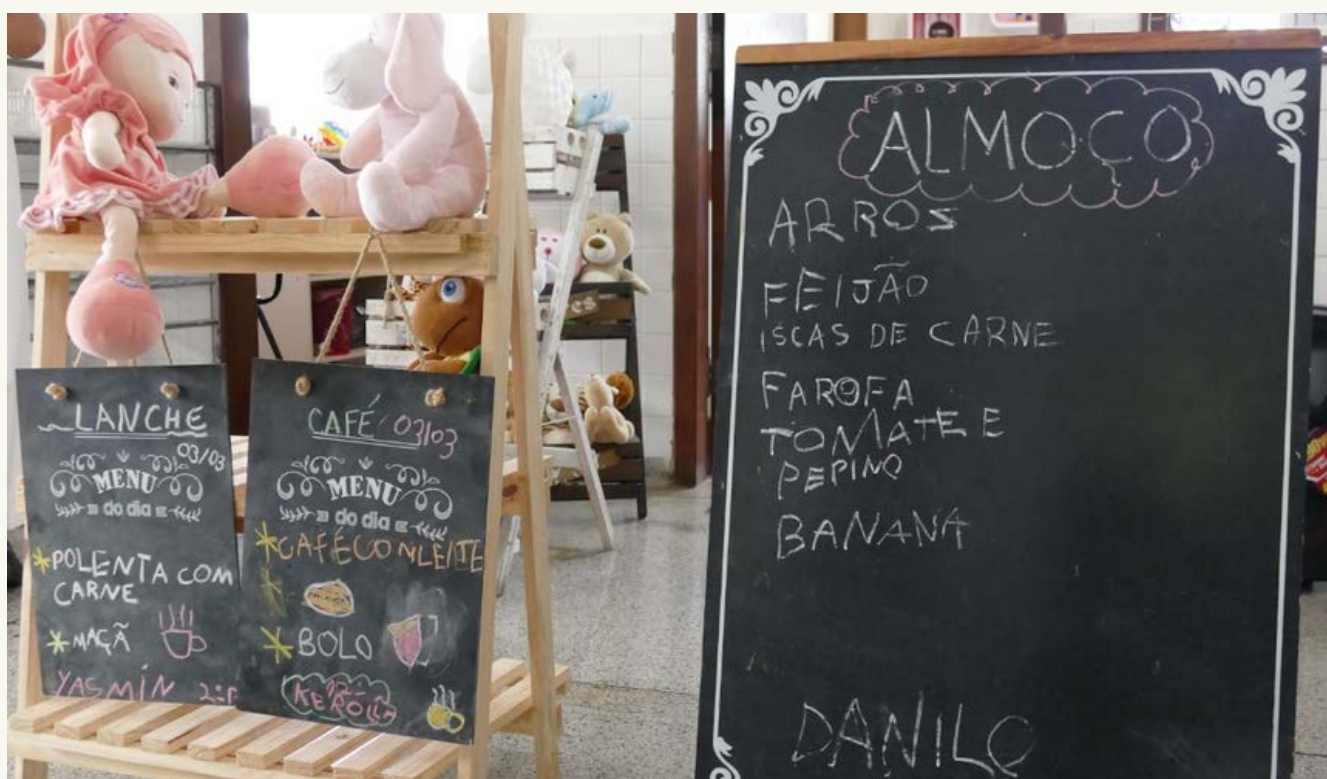 LANCHE
03/03
MENU
do dia
POLENTA COM
CARNE
MAÇÃ
YASMÍN
CAFÉ 03/03
MENU
do dia
CAFÉ CON LEITE
BOLO
ALMOÇO
ARROS
FEIJÃO
ISCAS DE CARNE
FAROFA
TOMATE E
PEPINO
BANANA
DANILO